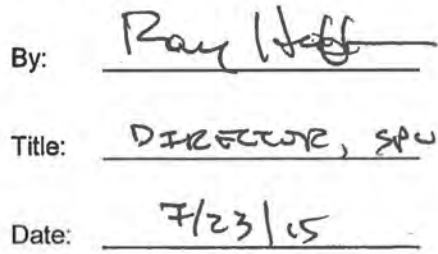 By: Ray Hoff
Title: DIRECTOR, SPU
Date: 7/23/15